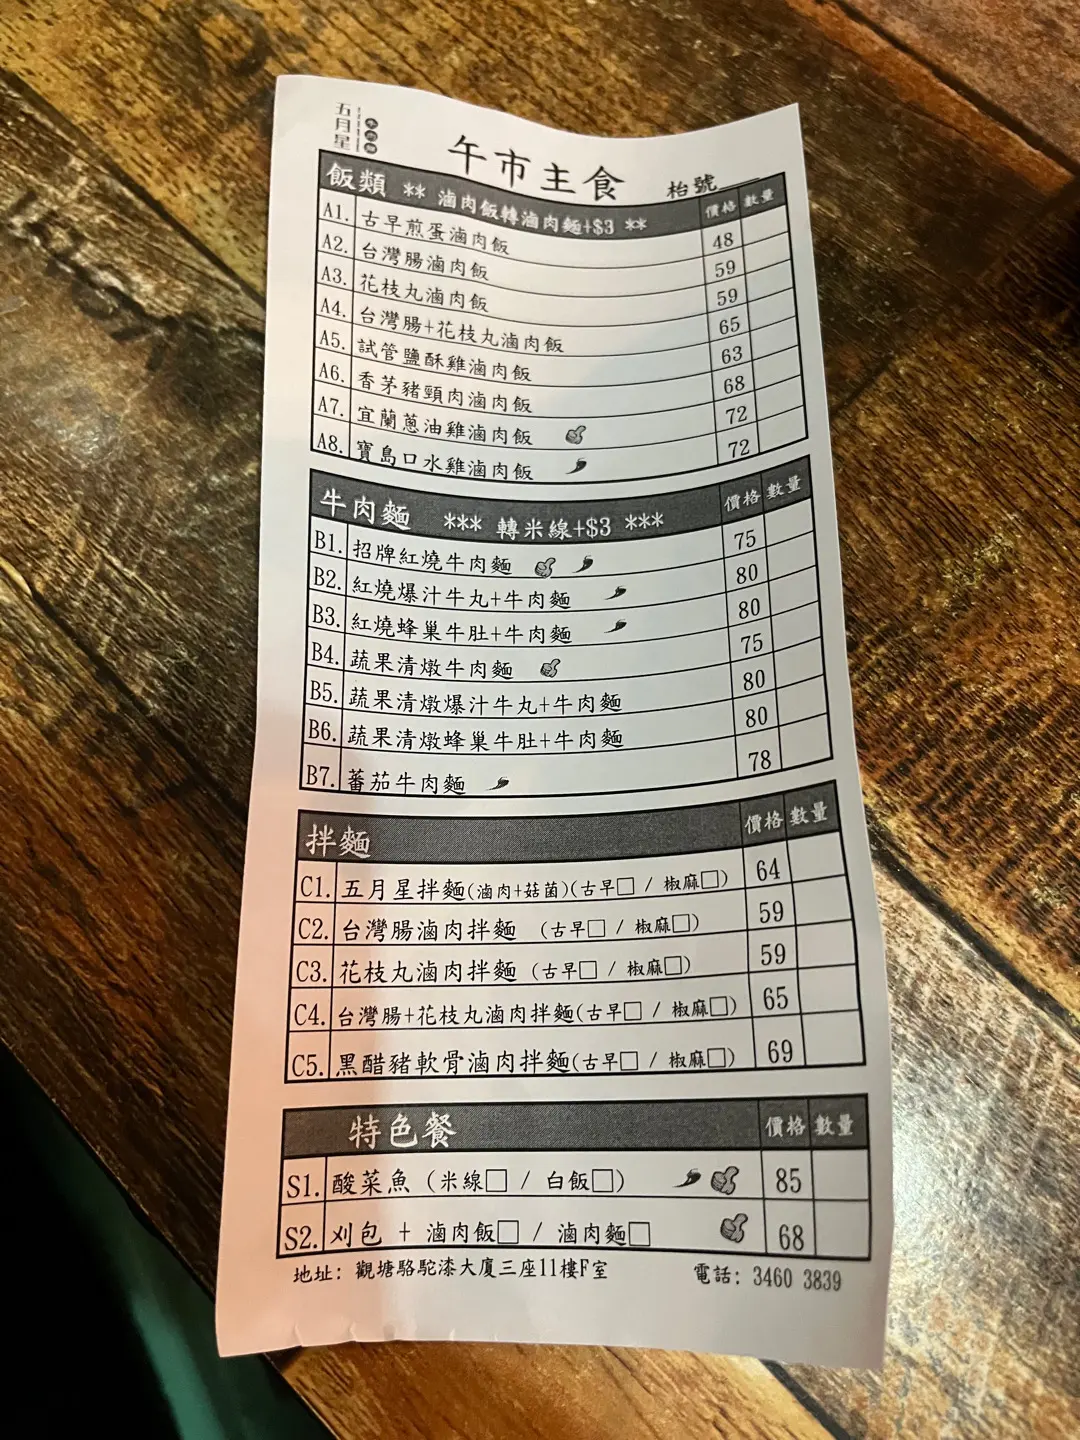 五月星
午市主食 枱號
飯類 ** 滷肉飯轉滷肉麵+$3 ** 價格 數量
A1. 古早煎蛋滷肉飯 48
A2. 台灣腸滷肉飯 59
A3. 花枝丸滷肉飯 59
A4. 台灣腸+花枝丸滷肉飯 65
A5. 試管鹽酥雞滷肉飯 63
A6. 香茅豬頸肉滷肉飯 68
A7. 宜蘭蔥油雞滷肉飯 72
A8. 寶島口水雞滷肉飯 72
牛肉麵 *** 轉米線+$3 *** 價格 數量
B1. 招牌紅燒牛肉麵 75
B2. 紅燒爆汁牛丸+牛肉麵 80
B3. 紅燒蜂巢牛肚+牛肉麵 80
B4. 蔬果清燉牛肉麵 75
B5. 蔬果清燉爆汁牛丸+牛肉麵 80
B6. 蔬果清燉蜂巢牛肚+牛肉麵 80
B7. 蕃茄牛肉麵 78
拌麵 價格 數量
C1. 五月星拌麵(滷肉+菇菌)(古早□ / 椒麻□) 64
C2. 台灣腸滷肉拌麵 (古早□ / 椒麻□) 59
C3. 花枝丸滷肉拌麵 (古早□ / 椒麻□) 59
C4. 台灣腸+花枝丸滷肉拌麵(古早□ / 椒麻□) 65
C5. 黑醋豬軟骨滷肉拌麵(古早□ / 椒麻□) 69
特色餐 價格 數量
S1. 酸菜魚 (米線□ / 白飯□) 85
S2. 刈包 + 滷肉飯□ / 滷肉麵□ 68
地址: 觀塘駱駝漆大廈三座11樓F室 電話: 3460 3839